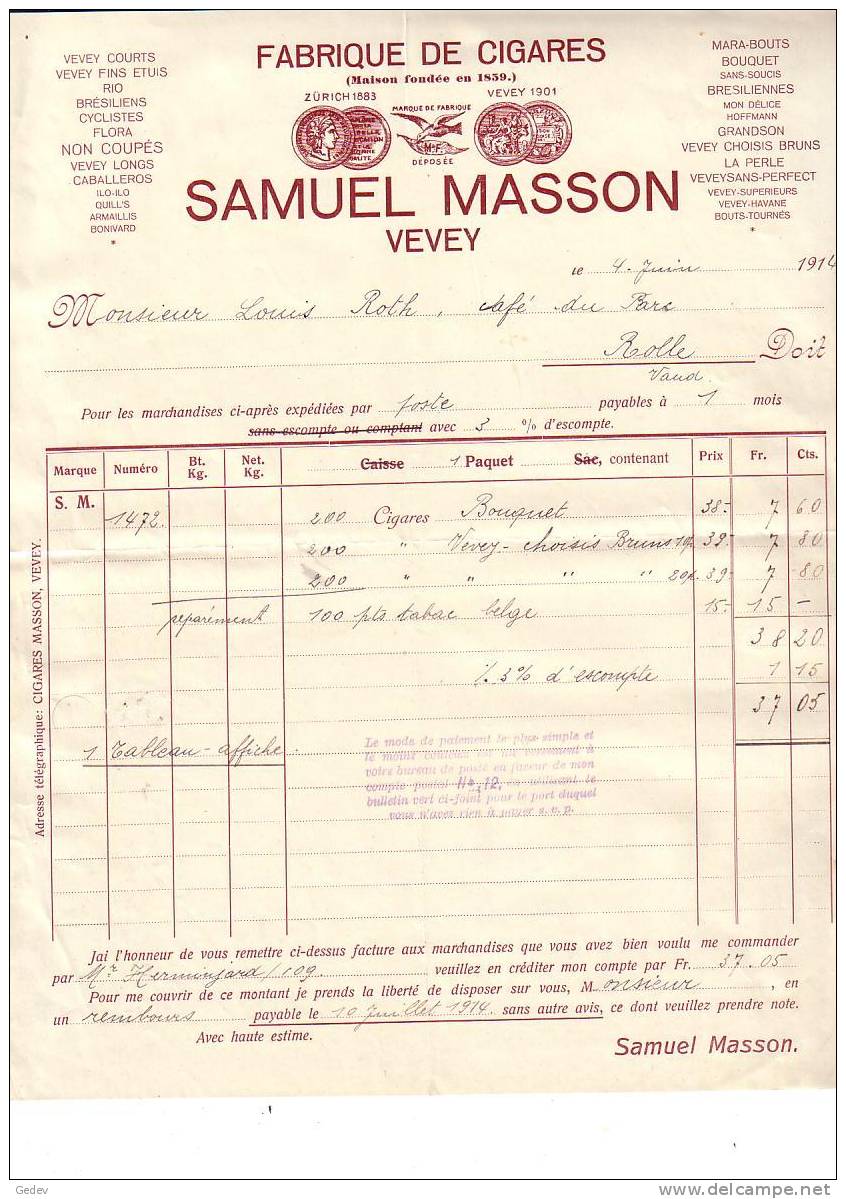 FABRIQUE DE CIGARES
(Maison fondée en 1859.)
ZÜRICH 1883
MARQUE DE FABRIQUE
VEVEY 1901
DÉPOSÉE
SAMUEL MASSON
VEVEY
VEVEY COURTS
VEVEY FINS ETUIS
RIO
BRÉSILIENS
CYCLISTES
FLORA
NON COUPÉS
VEVEY LONGS
CABALLEROS
ILO-ILO
QUILL'S
ARMAILLIS
BONIVARD
*
MARA-BOUTS
BOUQUET
SANS-SOUCIS
BRESILIENNES
MON DÉLICE
HOFFMANN
GRANDSON
VEVEY CHOISIS BRUNS
LA PERLE
VEVEYSANS-PERFECT
VEVEY-SUPERIEURS
VEVEY-HAVANE
BOUTS-TOURNÉS
*
LE 4. Juin 1914
Monsieur Louis Roth, café du Parc
Rolle Doit
Vaud.
Pour les marchandises ci-après expédiées par poste payables à 1 mois
sans escompte ou comptant avec 3 % d'escompte.
Marque Numéro Bt. Kg. Net. Kg. Caisse 1 Paquet Sac, contenant Prix Fr. Cts.
S. M. 1472. 200 Cigares Bouquet 38.- 7 60
200 " Vevey-choisis Bruns 39.- 7 80
200 " " " " 39.- 7 80
séparément 100 pts tabac belge 15.- 15 -
38 20
3% d'escompte 1 15
37 05
1 Tableau-affiche.
Le mode de paiement le plus simple et
le moins coûteux est un versement à
votre bureau de poste en faveur de mon
compte postal 12, en utilisant le
bulletin vert ci-joint pour le port duquel
vous n'avez rien à payer s. v. p.
Adresse télégraphique: CIGARES MASSON, VEVEY.
Jai l'honneur de vous remettre ci-dessus facture aux marchandises que vous avez bien voulu me commander
par Mr. Herminjard/109. veuillez en créditer mon compte par Fr. 37.05
Pour me couvrir de ce montant je prends la liberté de disposer sur vous, Monsieur, en
un rembours payable le 10 Juillet 1914 sans autre avis, ce dont veuillez prendre note.
Avec haute estime.
Samuel Masson.
Gedev
delcampe.net